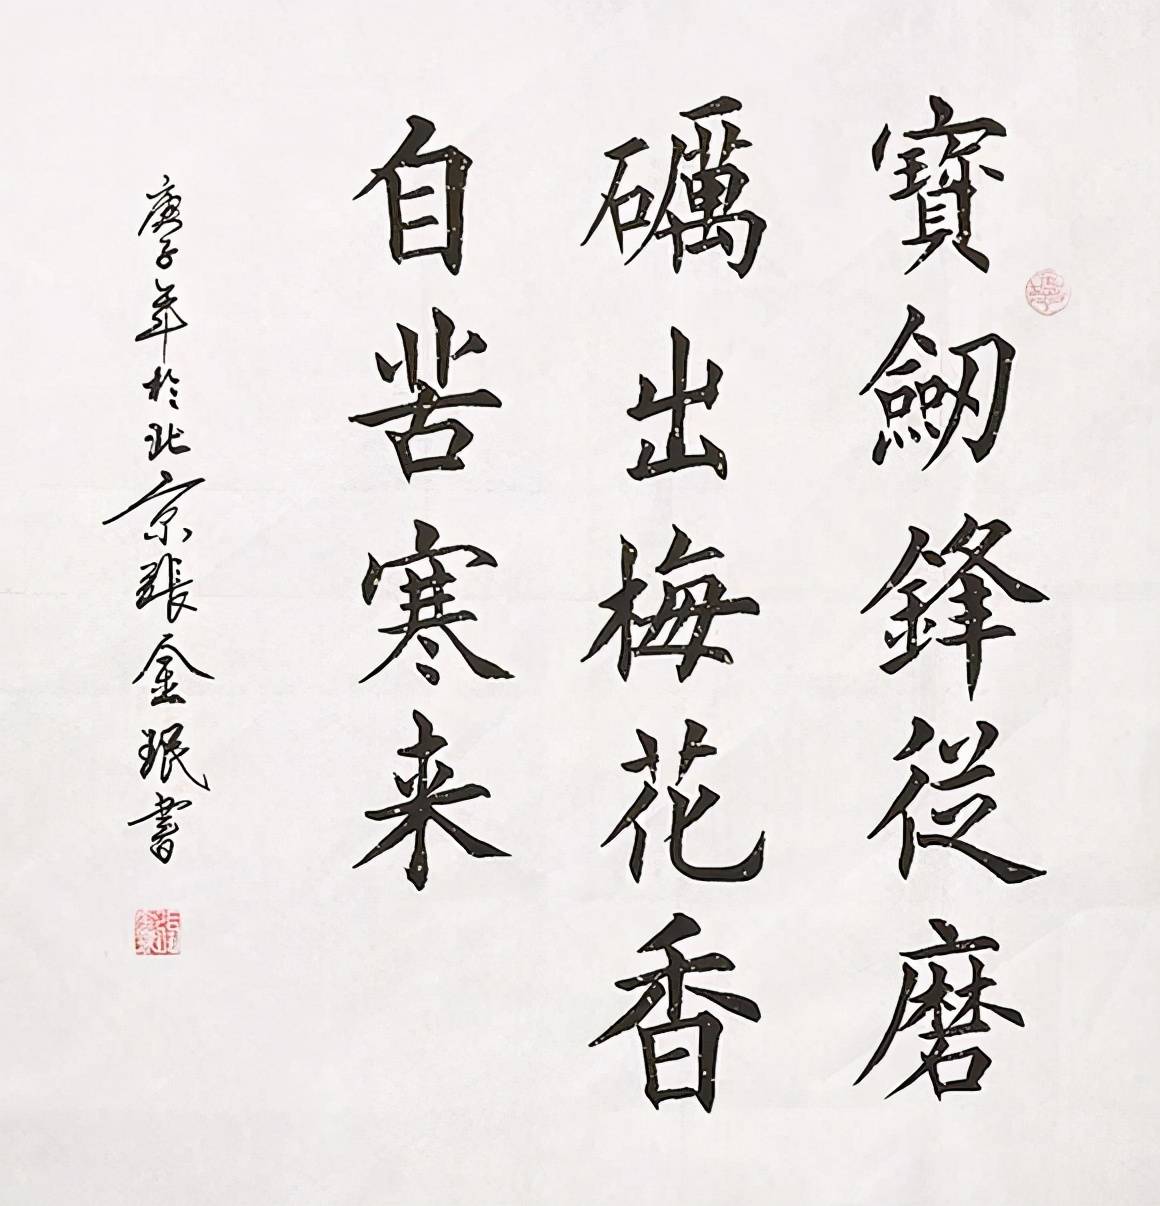 寶劒鋒從磨
礪出梅花香
自苦寒来
庚子年於北京張金珉書